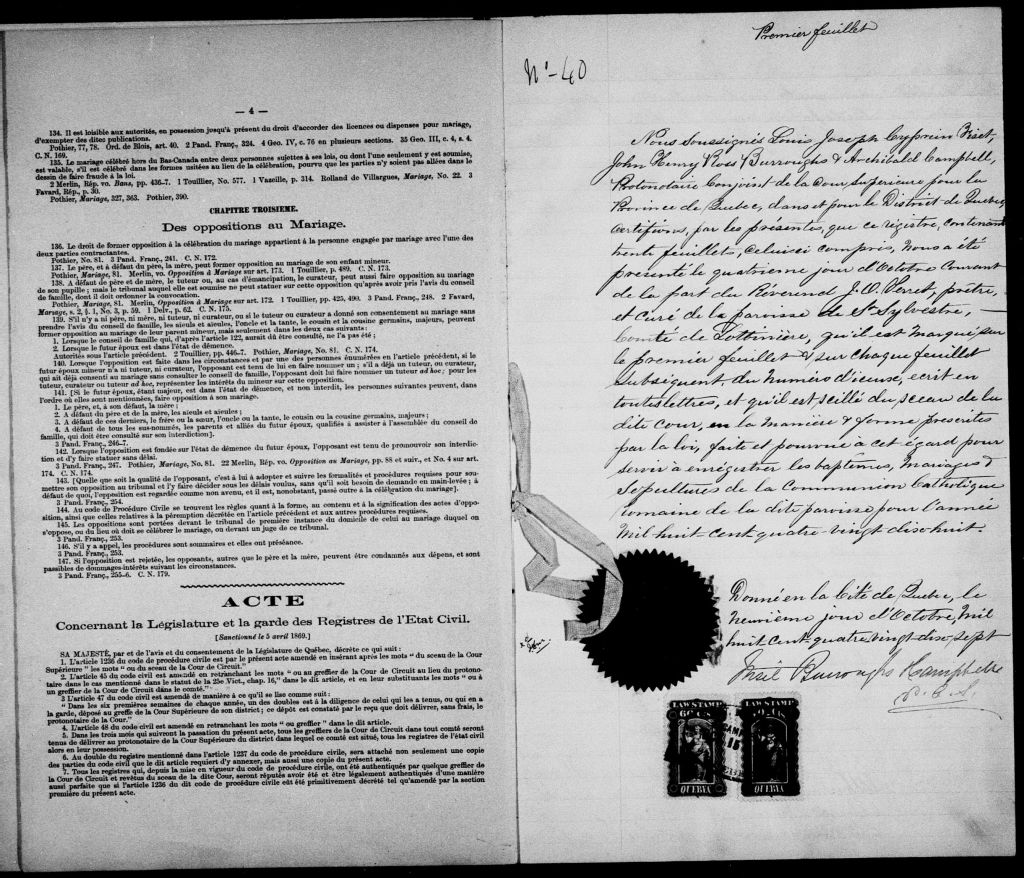 — 4 —
134. Il est loisible aux autorités, en possession jusqu'à présent du droit d'accorder des licences ou dispenses pour mariage,
d'exempter des dites publications.
Pothier, 77, 78. Ord. de Blois, art. 40. 2 Pand. Franç., 324. 4 Geo. IV, c. 76 en plusieurs sections. 35 Geo. III, c. 4, s. 4.
C. N. 169.
135. Le mariage célébré hors du Bas-Canada entre deux personnes sujettes à ses lois, ou dont l'une seulement y est soumise,
est valable, s'il est célébré dans les formes usitées au lieu de la célébration, pourvu que les parties n'y soient pas allées dans le
dessein de faire fraude à la loi.
2 Merlin, Rép. vo. Bans, pp. 436-7. 1 Touillier, No. 577. 1 Vazeille, p. 314. Rolland de Villargues, Mariage, No. 22. 3
Favard, Rép., p. 30.
Pothier, Mariage, 327, 363. Pothier, 390.
CHAPITRE TROISIEME.
Des oppositions au Mariage.
136. Le droit de former opposition à la célébration du mariage appartient à la personne engagée par mariage avec l'une des
deux parties contractantes.
Pothier, No. 81. 3 Pand. Franç., 241. C. N. 172.
137. Le père, et à défaut du père, la mère, peut former opposition au mariage de son enfant mineur.
Pothier, Mariage, 81. Merlin, vo. Opposition à Mariage sur art. 173. 1 Touillier, p. 489. C. N. 173.
138. A défaut de père et de mère, le tuteur ou, au cas d'émancipation, le curateur, peut aussi faire opposition au mariage
de son pupille; mais le tribunal auquel elle est soumise ne peut statuer sur cette opposition qu'après avoir pris l'avis du conseil
de famille, dont il doit ordonner la convocation.
Pothier, Mariage, 81. Merlin, Opposition à Mariage sur art. 172. 1 Touillier, pp. 425, 490. 3 Pand. Franç., 248. 2 Favard,
Mariage, s. 2, §. 1, No. 3, p. 59. 1 Delv., p. 62. C. N. 175.
139. S'il n'y a ni père, ni mère, ni tuteur, ni curateur, ou si le tuteur ou curateur a donné son consentement au mariage sans
prendre l'avis du conseil de famille, les aieuls et aieules, l'oncle et la tante, le cousin et la cousine germains, majeurs, peuvent
former opposition au mariage de leur parent mineur, mais seulement dans les deux cas suivants:
1. Lorsque le conseil de famille qui, d'après l'article 122, aurait dû être consulté, ne l'a pas été;
2. Lorsque le futur époux est dans l'état de démence.
Autorités sous l'article précédent. 2 Touillier, pp. 446-7. Pothier, Mariage, No. 81. C. N. 174.
140. Lorsque l'opposition est faite dans les circonstances et par une des personnes énumérées en l'article précédent, si le
futur époux mineur n'a ni tuteur, ni curateur, l'opposant est tenu de lui en faire nommer un; s'il a déjà un tuteur ou curateur,
qui ait déjà consenti au mariage sans consulter le conseil de famille, l'opposant doit lui faire nommer un tuteur ad hoc; pour les
tuteur, curateur ou tuteur ad hoc, représenter les intérêts du mineur sur cette opposition.
141. [Si le futur époux, étant majeur, est dans l'état de démence, et non interdit, les personnes suivantes peuvent, dans
l'ordre où elles sont mentionnées, faire opposition à son mariage.
1. Le père, et, à son défaut, la mère;
2. A défaut du père et de la mère, les aieuls et aieules;
3. A défaut de ces derniers, le frère ou la sœur, l'oncle ou la tante, le cousin ou la cousine germains, majeurs;
4. A défaut de tous les sus-nommés, les parents et alliés du futur époux, qualifiés à assister à l'assemblée du conseil de
famille, qui doit être consulté sur son interdiction].
3 Pand. Franç., 246-7.
142. Lorsque l'opposition est fondée sur l'état de démence du futur époux, l'opposant est tenu de promouvoir son interdic-
tion et d'y faire statuer sans délai.
3 Pand. Franç., 247. Pothier, Mariage, No. 81. 22 Merlin, Rép. vo. Opposition au Mariage, pp. 88 et suiv., et No. 4 sur art.
174. C. N. 174.
143. [Quelque soit la qualité de l'opposant, c'est à lui à adopter et suivre les formalités et procédures requises pour sou-
mettre son opposition au tribunal et l'y faire décider sous les délais voulus, sans qu'il soit besoin de demande en main-levée; à
défaut de quoi, l'opposition est regardée comme non avenu, et il est, nonobstant, passé outre à la célébration du mariage].
3 Pand. Franç., 254.
144. Au code de Procédure Civile se trouvent les règles quant à la forme, au contenu et à la signification des actes d'oppo-
sition, ainsi que celles relatives à la péremption décrétée en l'article précédent et aux autres procédures requises.
145. Les oppositions sont portées devant le tribunal de première instance du domicile de celui au mariage duquel on
s'oppose, ou du lieu où doit se célébrer le mariage, ou devant un juge de ce tribunal.
3 Pand. Franç., 253.
146. S'il y a appel, les procédures sont sommaires et elles ont préséance.
3 Pand. Franç., 253.
147. Si l'opposition est rejetée, les opposants, autres que le père et la mère, peuvent être condamnés aux dépens, et sont
passibles de dommages-intérêts suivant les circonstances.
3 Pand. Franç., 255-6. C. N. 179.
ACTE
Concernant la Législature et la garde des Registres de l'Etat Civil.
[Sanctionné le 5 avril 1869.]
SA MAJESTÉ, par et de l'avis et du consentement de la Législature de Québec, décrète ce qui suit:
1. L'article 1236 du code de procédure civile est par le présent acte amendé en insérant après les mots "du sceau de la Cour
Supérieure" les mots "ou du sceau de la Cour de Circuit."
2. L'article 45 du code civil est amendé en retranchant les mots "ou au greffier de la Cour de Circuit au lieu du protono-
taire dans le cas mentionné dans le statut de la 25e Vict., chap. 16," dans le dit article, et en leur substituant les mots "ou à
un greffier de la Cour de Circuit dans le comté."
3 L'article 47 du code civil est amendé de manière à ce qu'il se lise comme suit:
"Dans les six premières semaines de chaque année, un des doubles est à la diligence de celui qui les a tenus, ou qui en a
la garde, déposé au greffe de la Cour Supérieure de son district; ce dépôt est constaté par le reçu que doit délivrer, sans frais, le
protonotaire de la Cour."
4. L'article 48 du code civil est amendé en retranchant les mots "ou greffier" dans le dit article.
5. Dans les trois mois qui suivront la passation du présent acte, tous les greffiers de la Cour de Circuit dans tout comté seront
tenus de délivrer au protonotaire de la Cour Supérieure du district dans lequel ce comté est situé, tous les registres de l'état civil
alors en leur possession.
6. Au double du registre mentionné dans l'article 1237 du code de procédure civile, sera attaché non seulement une copie
des parties du code civil que le dit article requiert d'y annexer, mais aussi une copie du présent acte.
7. Tous les registres qui, depuis la mise en vigueur du code de procédure civile, ont été authentiqués par quelque greffier de
la Cour de Circuit et revêtus du sceau de la dite Cour, seront réputés avoir été et être légalement authentiqués d'une manière
aussi parfaite que si l'article 1236 du dit code de procédure civile eût été primitivement décrété tel qu'amendé par la section
première du présent acte.
Premier feuillet
No - 40
Nous Soussignés Louis Joseph Cyprien Fiset,
John Henry Ross Burroughs & Archibald Campbell,
Protonotaire Conjoint de la Cour Supérieure pour la
Province de Quebec, dans et pour le District de Quebec,
Certifions, par les présentes, que ce registre, contenant
trente feuillets, celui-ci compris, nous a été
présenté le quatrième jour d'Octobre Courant
de la part du Révérend J. O. Perret, prêtre,
et curé de la paroisse de St Sylvestre,
Comté de Lotbinière, qu'il est marqué sur
le premier feuillet & sur chaque feuillet
subséquent du numéro d'iceux, écrit en
toutes lettres, et qu'il est scellé du sceau de la
dite Cour, en la manière & forme prescrites
par la loi, faite et pourvue à cet égard pour
servir à enrégistrer les baptêmes, Mariages &
Sépultures de la Communion Catholique
romaine de la dite paroisse pour l'année
Mil huit cent quatre-vingt dix huit.
Donné en la Cité de Quebec, le
neuvième jour d'Octobre, Mil
huit Cent quatre vingt dix, sept
Fiset Burroughs & Campbell
P. C. S.
LAW STAMP
QUEBEC
LAW STAMP
QUEBEC